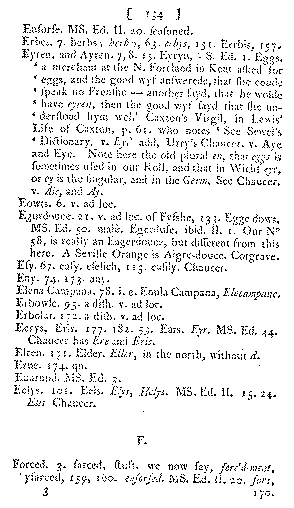 [ 134 ]
Ensorse. MS. Ed. II. 20. seasoned.
Erbes. 7. herbs, herbs, 63. erbys, 151. Erbis, 157.
Eyren, and Ayren. 7, 8. 15. Eyryn, S. Ed. 1. Eggs,
' a merchant at the N. Foreland in Kent asked for
' eggs, and the good wyf answerede, that she coude
' speak no Frenshe — another sayd, that he wolde
' have eyren, then the good wyf sayd that she un-
' derstood hym wel.' Caxton's Virgil, in Lewis'
Life of Caxton, p. 61. who notes ' See Sewel's
' Dictionary, v. Ey.' add, Urry's Chaucer, v. Aye
and Eye. Note here the old plural en, that eggs is
sometimes used in our Roll, and that in Wiclif eye,
or ey is the singular, and in the Germ. See Chaucer,
v. Aie, and Ay.
Eowts. 6. v. ad loc.
Egurdouce. 21. v. ad loc. of Fysshe, 133. Egge dows,
MS. Ed. 50. male. Egerduse. ibid. II. 1. Our No
58, is really an Eagerdouce, but different from this
here. A Seville Orange is Aigre-douce. Cotgrave.
Esy. 67. easy. eselich, 113. easily. Chaucer.
Eny. 74. 173. any.
Elena Campana. 78. i. e. Enula Campana, Elecampane.
Erbowle. 95. a dish. v. ad loc.
Erbolat. 172. a dish. v. ad loc.
Eerys, Eris. 177. 182. 55. Ears. Eyr. MS. Ed. 44.
Chaucer has Ere and Eris.
Elren. 171. Elder. Eller, in the north, without d.
Erne. 174. qu.
Euarund. MS. Ed. 3.
Eelys. 101. Eels. Elys, Helys. MS. Ed. II. 15. 24.
Elis Chaucer.
F.
Forced. 3. farced, stuft. we now say, forc'd-meat,
yfarced, 159, 160. enforsed. MS. Ed. II. 20. fors,
3 170.